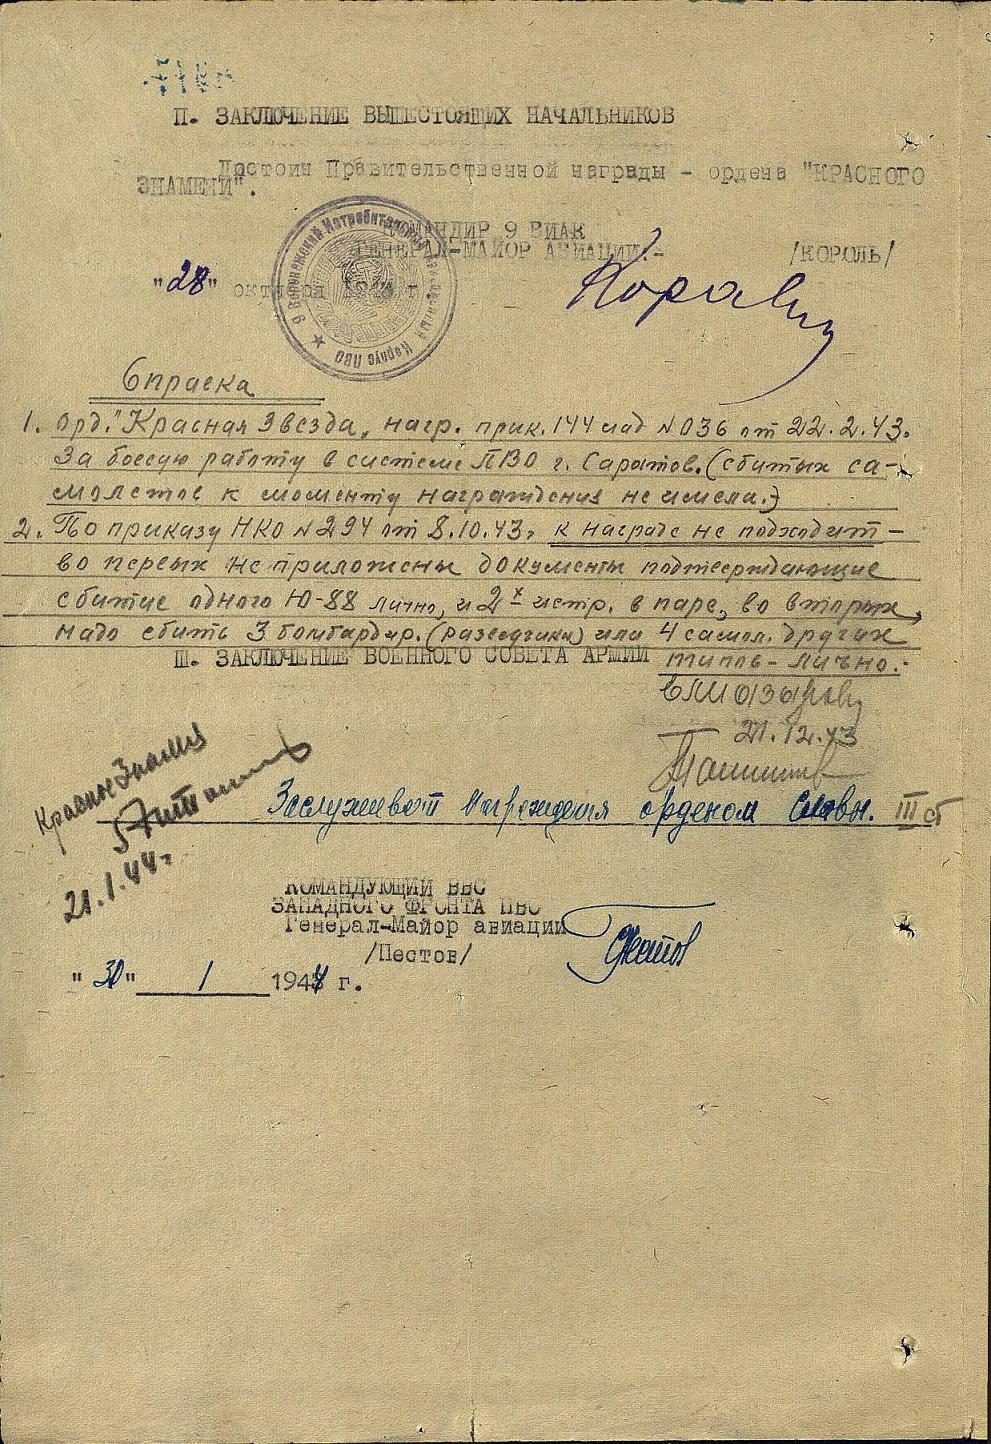 П. ЗАКЛЮЧЕНИЕ ВЫШЕСТОЯЩИХ НАЧАЛЬНИКОВ
Достоин Правительственной награды - ордена "КРАСНОГО
ЗНАМЕНИ".
КОМАНДИР 9 ВИАК
ГЕНЕРАЛ-МАЙОР АВИАЦИИ:-
/КОРОЛЬ/
"28" октя
9 Воронежский Истребительный Авиационный Корпус ПВО
Справка
1. Орд. "Красная Звезда" нагр. прик. 144 иад № 036 от 22.2.43.
За боевую работу в системе ПВО г. Саратов. (сбитых са-
молетов к моменту награждения не имела.)
2. По приказу НКО № 294 от 8.10.43. к награде не подходит -
во первых не приложены документы подтверждающие
сбитие одного Ю-88 лично, и 2х истр. в паре, во вторых,
надо сбить 3 бомбардир. (разведчики) или 4 самол. других
типов - лично.-
Ш. ЗАКЛЮЧЕНИЕ ВОЕННОГО СОВЕТА АРМИИ
21.12.43
Красное Знамя
21.1.44г.
Заслуживает награждения орденом Славы. III ст
КОМАНДУЮЩИЙ ВВС
ЗАПАДНОГО ФРОНТА ПВО
Генерал-Майор авиации
/Пестов/
"30" 1 1944 г.